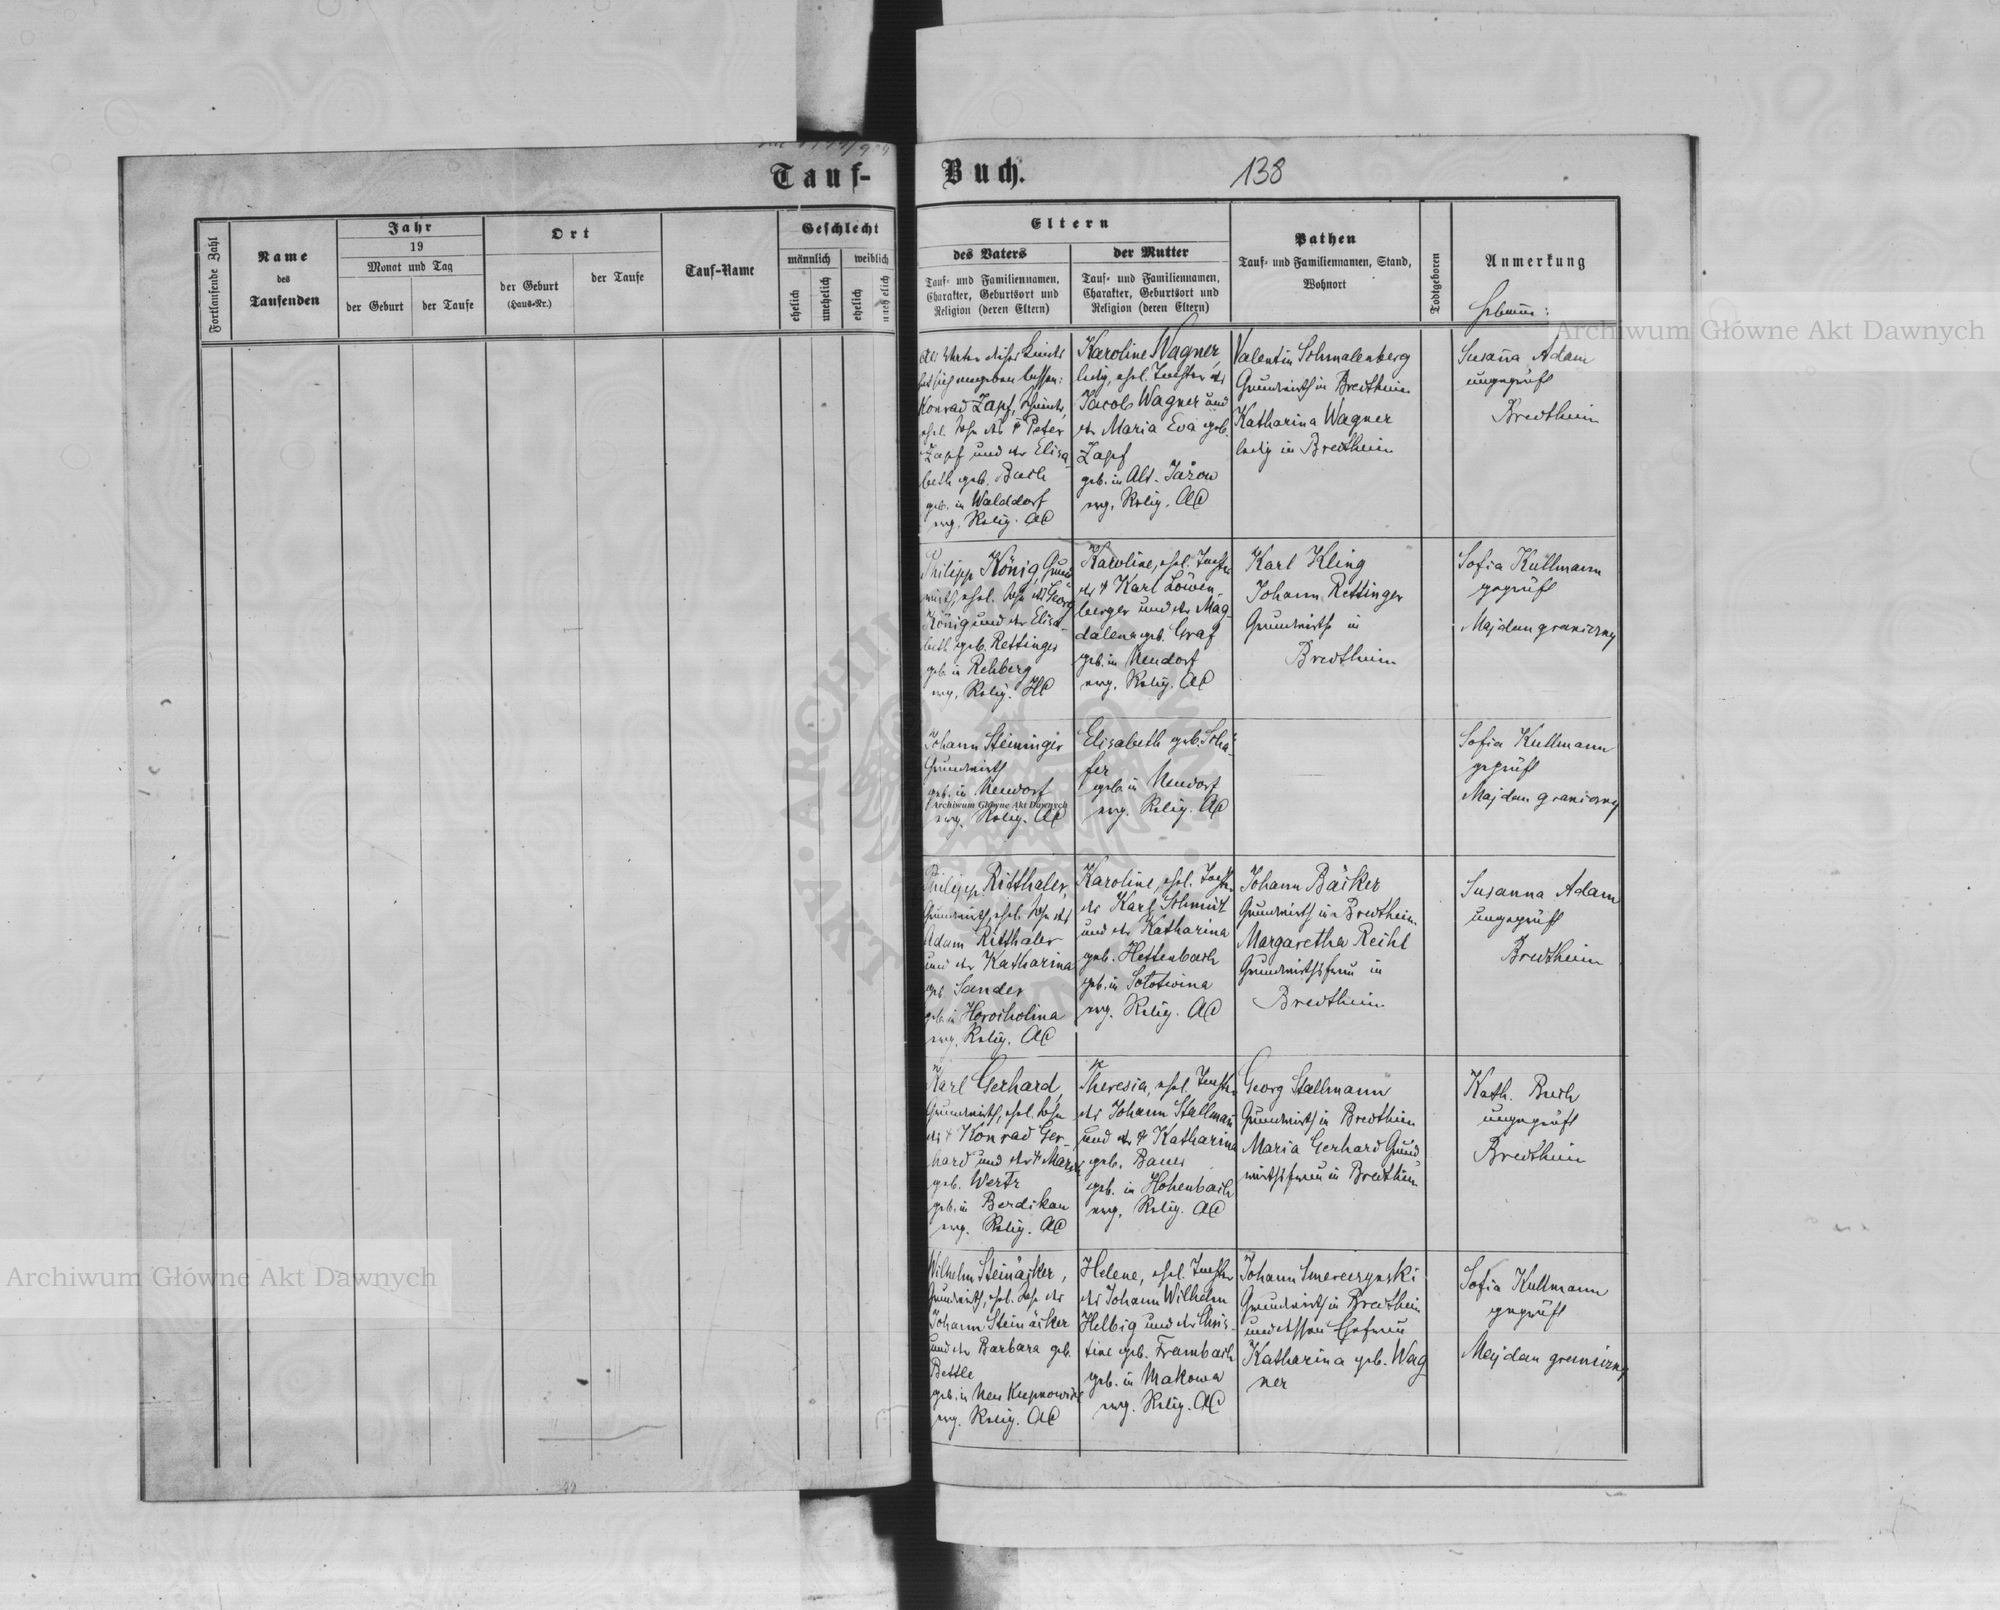 Tauf-
Buch.
138
Fortlaufende Zahl
Name
des
Taufenden
Jahr
19
Monat und Tag
der Geburt
der Taufe
Ort
der Geburt
(Haus-Nr.)
der Taufe
Tauf-Name
Geschlecht
männlich
weiblich
ehelich
unehelich
ehelich
unehelich
Eltern
des Vaters
Tauf- und Familiennamen,
Charakter, Geburtsort und
Religion (deren Eltern)
der Mutter
Tauf- und Familiennamen,
Charakter, Geburtsort und
Religion (deren Eltern)
Pathen
Tauf- und Familiennamen, Stand,
Wohnort
Todtgeboren
Anmerkung
Hebamme:
Als Vater dieses Kindes
hat sich angeben lassen:
Konrad Zapf,
ehel. Sohn des † Peter
Zapf und der Elisa-
beth geb. Bach
geb. in Walddorf
evg. Relig. AC
Karoline Wagner,
ledig, ehel. Tochter des
Jacob Wagner und
der Maria Eva geb.
Zapf
geb. in Alt-Jazow
evg. Relig. AC
Valentin Schmalenberg
Grundwirth in Bredtheim
Katharina Wagner
ledig in Bredtheim
Susanna Adam
ungeprüft
Bredtheim
Philipp König, Grund-
wirth, ehel. Sohn des Georg
König und der Elisa-
beth geb. Rettinger
geb. in Rehberg
evg. Relig. HC
Karoline, ehel. Tochter
des † Karl Löwen-
berger und der Mag-
dalena geb. Graf
geb. in Neudorf
evg. Relig. AC
Karl Kling
Johann Rettinger
Grundwirthe in
Bredtheim
Sofia Kullmann
geprüft
Majdan graniczny
Johann Steininger
Grundwirth
geb. in Neudorf
evg. Relig. AC
Elisabeth geb. Schä-
fer
geb. in Neudorf
evg. Relig. AC
Sofia Kullmann
geprüft
Majdan graniczny
Philipp Ritthaler,
Grundwirth, ehel. Sohn des
Adam Ritthaler
und der Katharina
geb. Sander
geb. in Horocholina
evg. Relig. AC
Karoline, ehel. Tochter
des Karl Schmidt
und der Katharina
geb. Hettenbach
geb. in Solotwina
evg. Relig. AC
Johann Bäcker
Grundwirth in Bredtheim
Margaretha Reichl
Grundwirthsfrau in
Bredtheim
Susanna Adam
ungeprüft
Bredtheim
Karl Gerhard,
Grundwirth, ehel. Sohn
des † Konrad Ger-
hard und der † Maria
geb. Wertz
geb. in Berdikau
evg. Relig. AC
Theresia, ehel. Tochter
des Johann Stallmann
und der † Katharina
geb. Bauer
geb. in Hohenbach
evg. Relig. AC
Georg Stallmann
Grundwirth in Bredtheim
Maria Gerhard Grund-
wirthsfrau in Bredtheim
Kath. Buch
ungeprüft
Bredtheim
Wilhelm Steinäcker,
Grundwirth, ehel. Sohn des
Johann Steinäcker
und der Barbara geb.
Bettle
geb. in Neu Kupnowice
evg. Relig. AC
Helene, ehel. Tochter
des Johann Wilhelm
Helbig und der Chris-
tine geb. Frambach
geb. in Makowa
evg. Relig. AC
Johann Smereczynski
Grundwirth in Bredtheim
und dessen Ehefrau
Katharina geb. Wag-
ner
Sofia Kullmann
geprüft
Majdan graniczny
Archiwum Główne Akt Dawnych
Archiwum Główne Akt Dawnych
Archiwum Główne Akt Dawnych